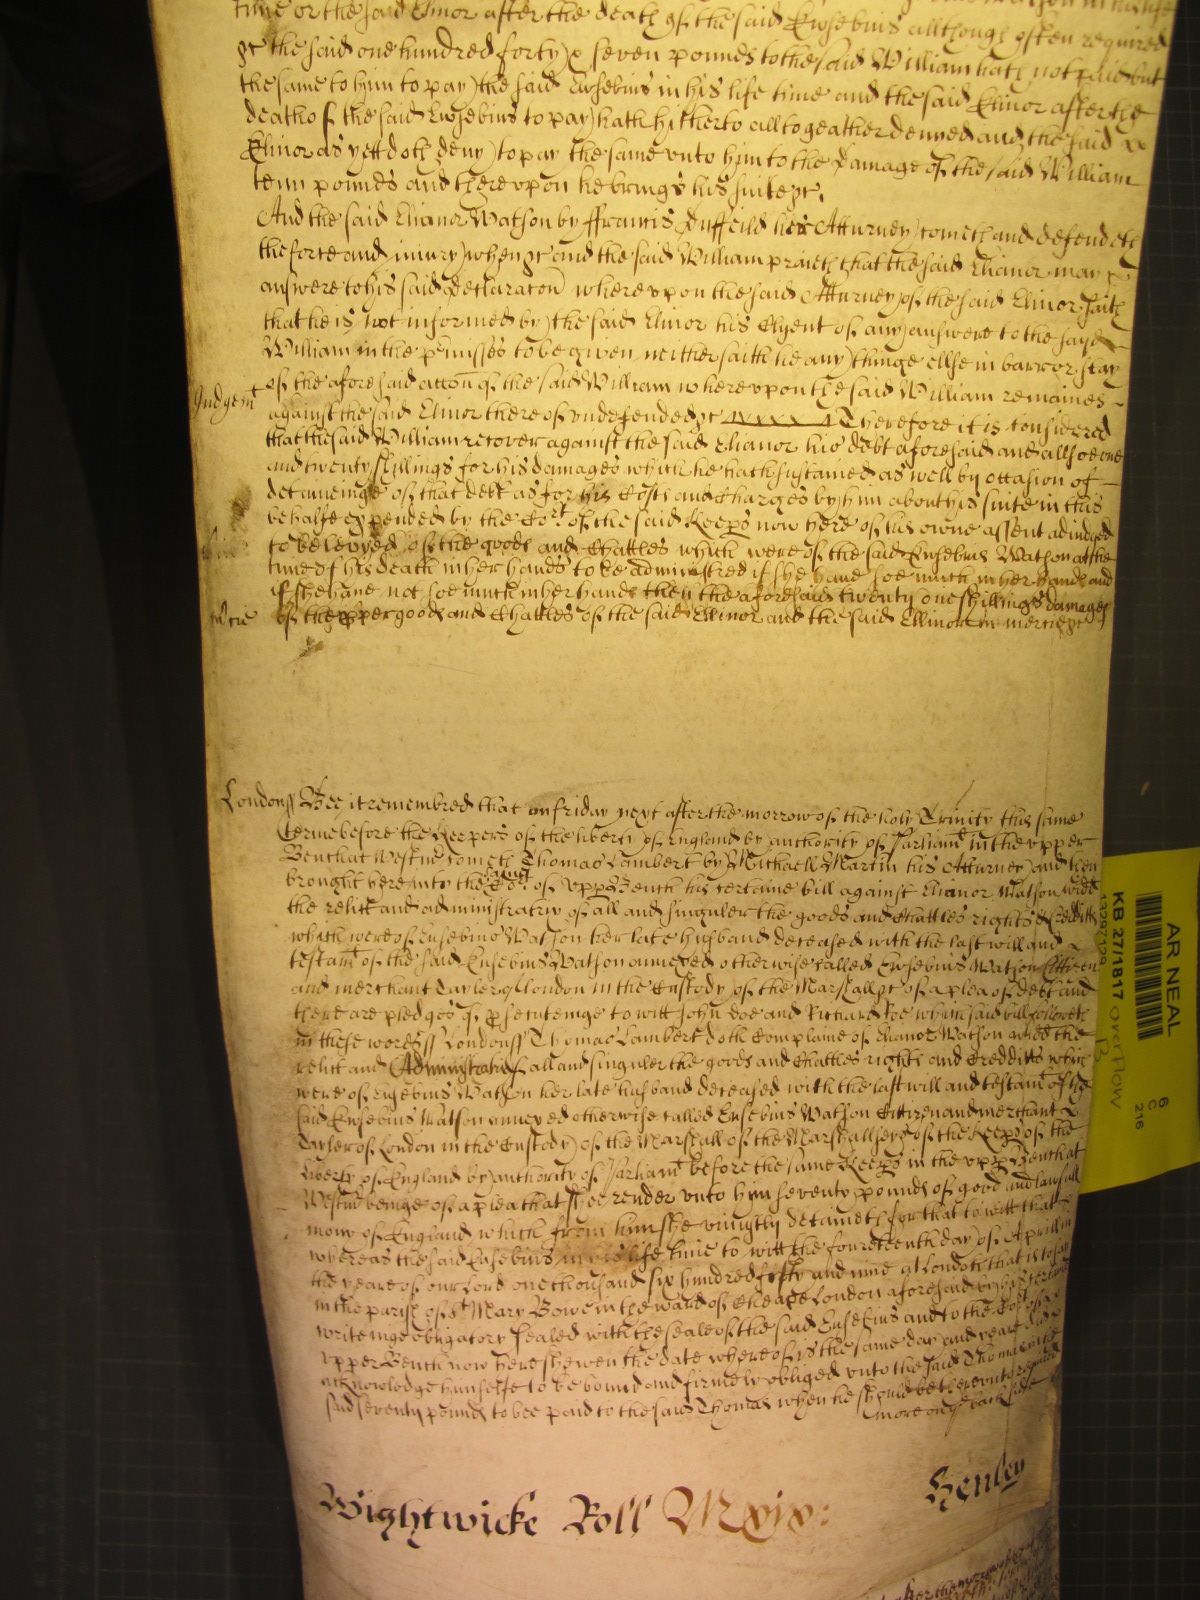 time or the said Elinor after the death of the said Ewsebius allthough often required
&c the said one hundred forty x seven pounds to the said William hath not paid but
the same to hym to pay the said Ewsebius in his life time and the said Elinor after the
death of the said Ewsebius to pay hath hitherto alltogeather denyed and the said x
Elinor as yett doth deny to pay the same unto him to the damage of the said William
tenn pounds and thereupon he brings his suite &c.
And the said Elianor Watson by ffrancis Duffeild her Atturney cometh and defendeth
the force and iniury when &c and the said William prayeth that the said Elianor may x
answere to his said Declaracon whereupon the said Atturney of the said Elinor saith
that he is not informed by the said Elinor his Clyent of any answere to the sayd
William in the p'misses to be given neither saith he any thinge ellse in barr or stay
of the aforesaid accon of the said William whereupon the said William remaines
Judgemt against the said Elinor thereof undefended &c Therefore it is considered
that the said William recover against the said Elianor his debt aforesaid and allsoe one
and twenty shillings for his damages which he hath sustained as well by occasion of
detaineinge of that debt as for his Costs and Charges by him about his suite in this
behalfe expended by the Cort of the said Keeps now here of his owne assent adiudged
to be levyed of the goods and Chattles which were of the said Ewsebius Watson att the
time of his death in her hands to be administred if she have soe much in her hands and
if she have not soe much in her hands then the aforesaid twenty one shillings damages
of the p'per goods and Chattles of the said Ellinor and the said Ellinor in mercy &c
London ss Bee it remembred that on friday next after the morrow of the holy Trinity this same
terme before the Keepers of the liberty of England by authority of Parliamt in the upper
Bench at Westmr cometh Thomas Lambert by Michaell Martin his Atturney and then
brought here into the Cort of Upp Bench his certaine bill against Elianor Watson widd
the relict and administratrix of all and singuler the goods and Chattles rights & Creditts
which were of Eusebius Watson her late husband deceased with the last will and x
testamt of the said Eusebius Watson annexed otherwise called Ewsebius Watson Cittizen
and merchant Tayler of London in the Custody of the Marshall &c of a plea of debt and
there are pledges of p'secuteinge to witt John Doe and Richard Roe which said bill followeth
in these words ss London ss Thomas Lambert doth Complaine of Elianor Watson widd the
relict and Administratrix of all and singuler the goods and Chattles rights and Creditts which
were of Eusebius Watson her late husband deceased with the last will and testamt of the
said Eusebius Watson annexed otherwise called Eusebius Watson Cittizen and merchant x
Tayler of London in the Custody of the Marshall of the Marshallsey of the Keeps of the
liberty of England by authority of Parliamt before the same Keeps in the upp Bench at
Westmr beinge of a plea that shee render unto hym seventy pounds of good and lawfull
mony of England which from him she uniustly detaineth for that to witt that
whereas the said Eusebius in his life time to witt the fourteenth day of Aprill in
the yeare of our Lord one thousand six hundred forty and nine at London that is to say
in the parish of St Mary Bowe in the ward of Cheape London aforesaid by his certaine
writeinge obligatory sealed with the seale of the said Eusebius and to the Cort of
upper Bench now here shewen the date whereof is the same day and yeare did
acknowledge himselfe to be bound and firmely obliged unto the said Thomas in the
said seventy pounds to bee paid to the said Thomas when he should be thereunto required
more on ye back side
Wightwicke Roll Mxix: Henley
AR NEAL
KB 27/1817 overflow
6
C
216